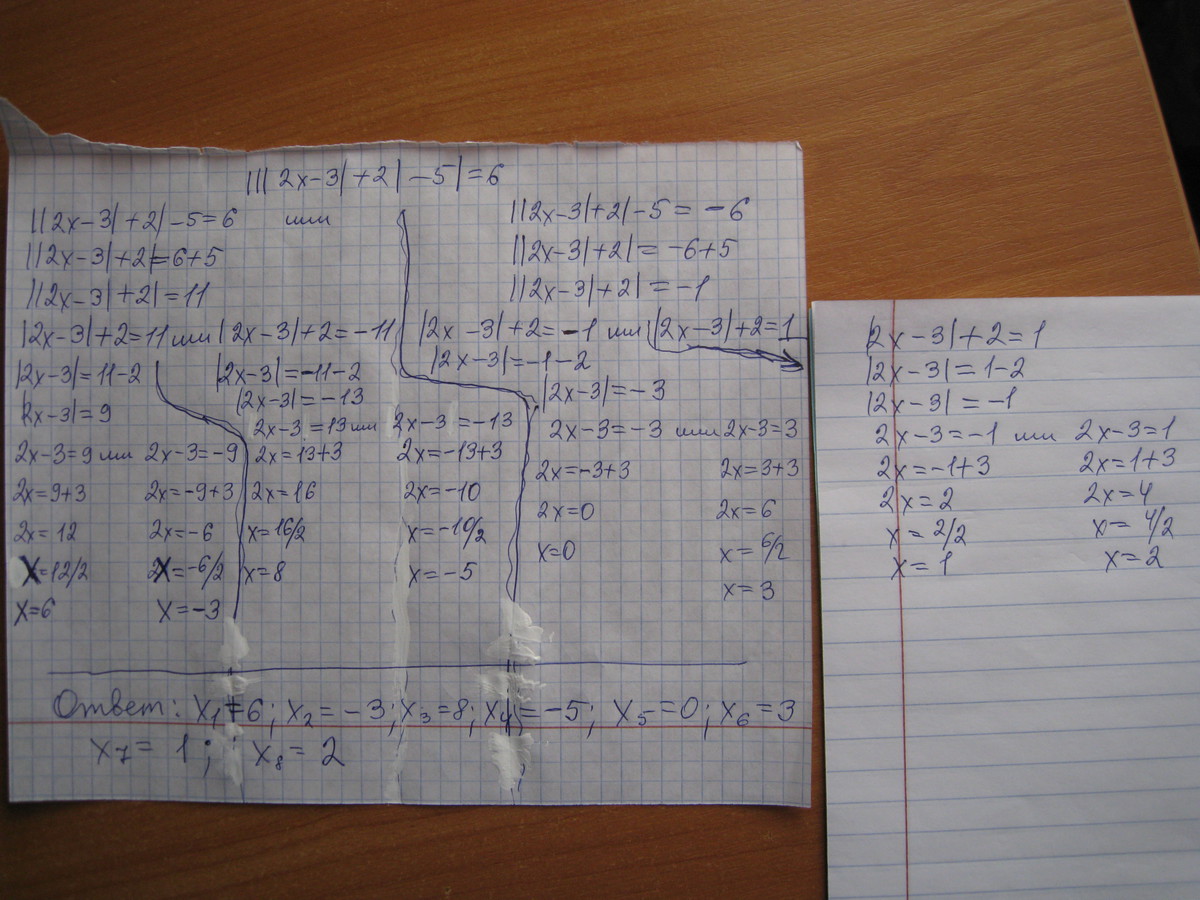 ||| 2x-3|+2|-5|=6
||2x-3|+2|-5=6 или ||2x-3|+2|-5=-6
||2x-3|+2|=6+5 ||2x-3|+2|=-6+5
||2x-3|+2|=11 ||2x-3|+2|=-1
|2x-3|+2=11 или |2x-3|+2=-11 |2x-3|+2=-1 или |2x-3|+2=1
|2x-3|=11-2 |2x-3|=-11-2 |2x-3|=-1-2
|2x-3|=9 |2x-3|=-13 |2x-3|=-3
2x-3=9 или 2x-3=-9 2x-3=13 или 2x-3=-13 2x-3=-3 или 2x-3=3
2x=9+3 2x=-9+3 2x=13+3 2x=-13+3 2x=-3+3 2x=3+3
2x=12 2x=-6 2x=16 2x=-10 2x=0 2x=6
x=12/2 2x=-6/2 x=16/2 x=-10/2 x=0 x=6/2
x=6 x=-3 x=8 x=-5 x=3
Ответ: x1=6; x2=-3; x3=8; x4=-5; x5=0; x6=3
x7=1; x8=2
|2x-3|+2=1
|2x-3|=1-2
|2x-3|=-1
2x-3=-1 или 2x-3=1
2x=-1+3 2x=1+3
2x=2 2x=4
x=2/2 x=4/2
x=1 x=2